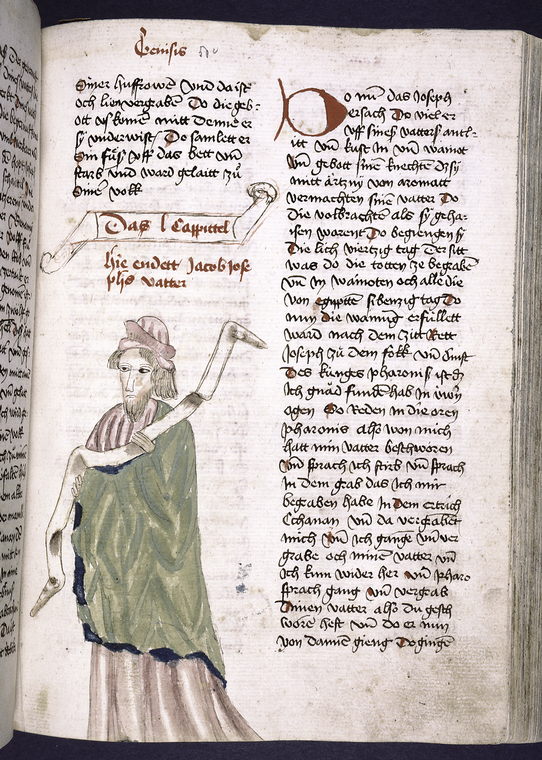 Genisis
Siner husfrowen Vnd da ist
och lien vergraben Do die geb-
ott vs komen mitt denne er
sy vnderwist Do samlett er
Sin füß vff das bett vñ
starb vnd ward geleitt zü
Sinē volk
Das l Cappittel
hie endett Jacob Jose
phs vatter
Do nū das Joseph
ersach Do viel er
vff sines vatters antl-
itt vñ kust in vñ wainot
vñ gebott sinē knechtē dz sy
mitt ärtzny von aromatt
vermachten sinē vatter Do
Die volbrachtē als sy gehai-
isen worent Do begiengen sy
Die lich viertzig tag Der sitt
was do die totten ze begrabē
vñ in wainoten och alle die
von egyptē sibenzig tag Do
nun die wainūg erfüllett
ward nach dem zitt Rett
Joseph zü dem folk vñ
Des künges pharonis ist dz
Ich gnäd fundē hab in üwrn
ogen So Reden in die oren
pharonis also won mich
hatt min vatter beschworen
vñ sprach ich stirb vñ sprach
in dem grab das ich mir
begraben habe in dem ertrich
Cchanan vñ da vergabēt
mich vñ ich gange vñ ver
grabe och minē vatter vñ
Ich kum wider her vñ pharo
sprach gang vñ vergrab
Dinen vatter also du gesch
worē hest vñ do er nun
von dannē gieng Do gingē